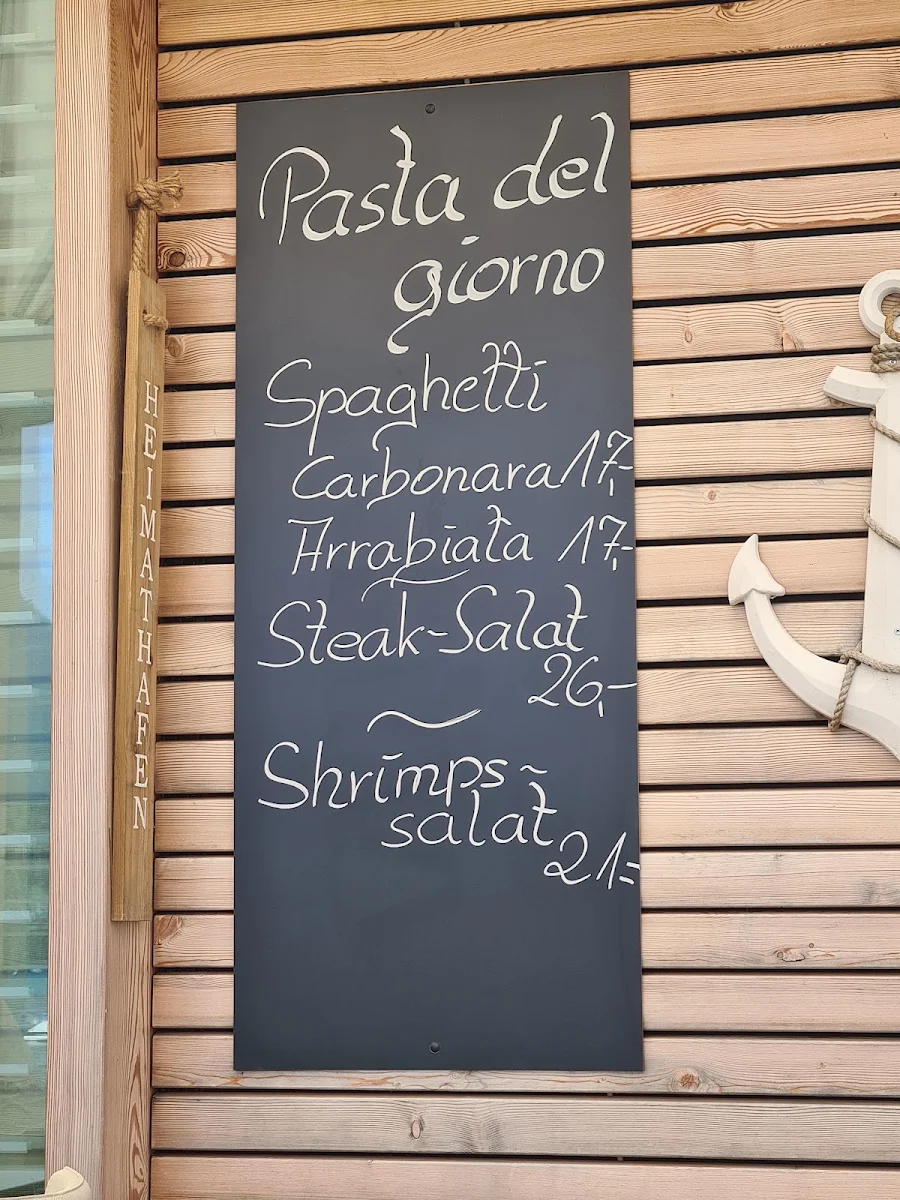 Pasta del
giorno
Spaghetti
Carbonara 17,-
Arrabiata 17,-
Steak-Salat
26,-
Shrimps-
salat
21=
HEIMATHAFEN